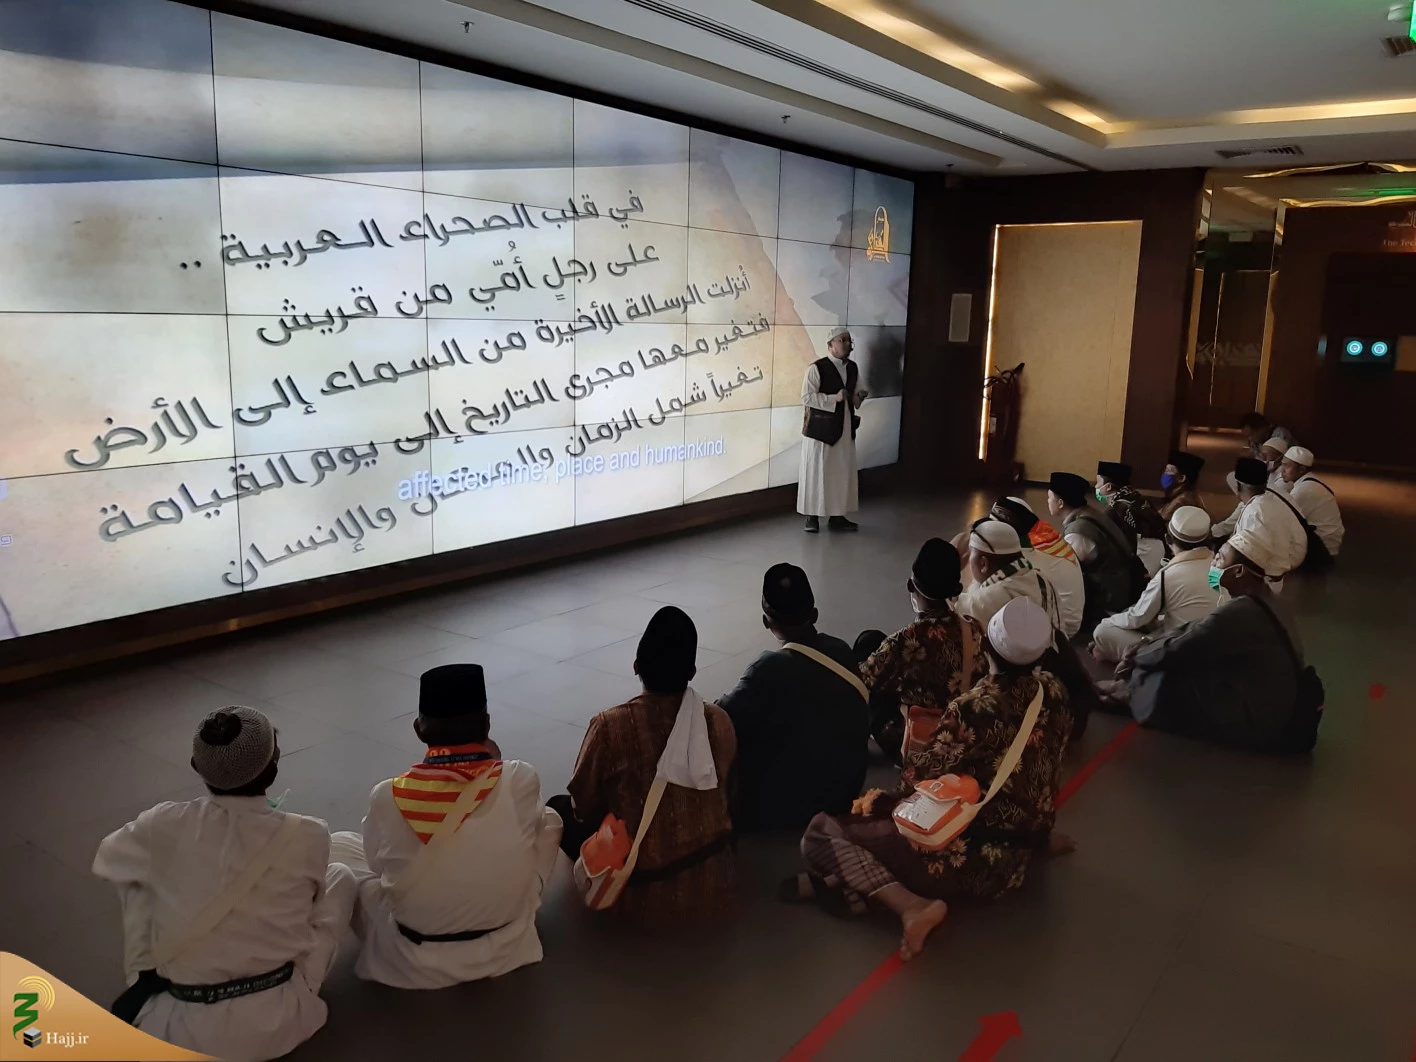 في قلب الصحراء العربية ..
على رجلٍ أُمّي من قريش
أُنزلت الرسالة الأخيرة من السماء إلى الأرض
فتغير معها مجرى التاريخ إلى يوم القيامة
تغيراً شمل الزمان والمكان والإنسان
affected time, place and humankind.
Hajj.ir